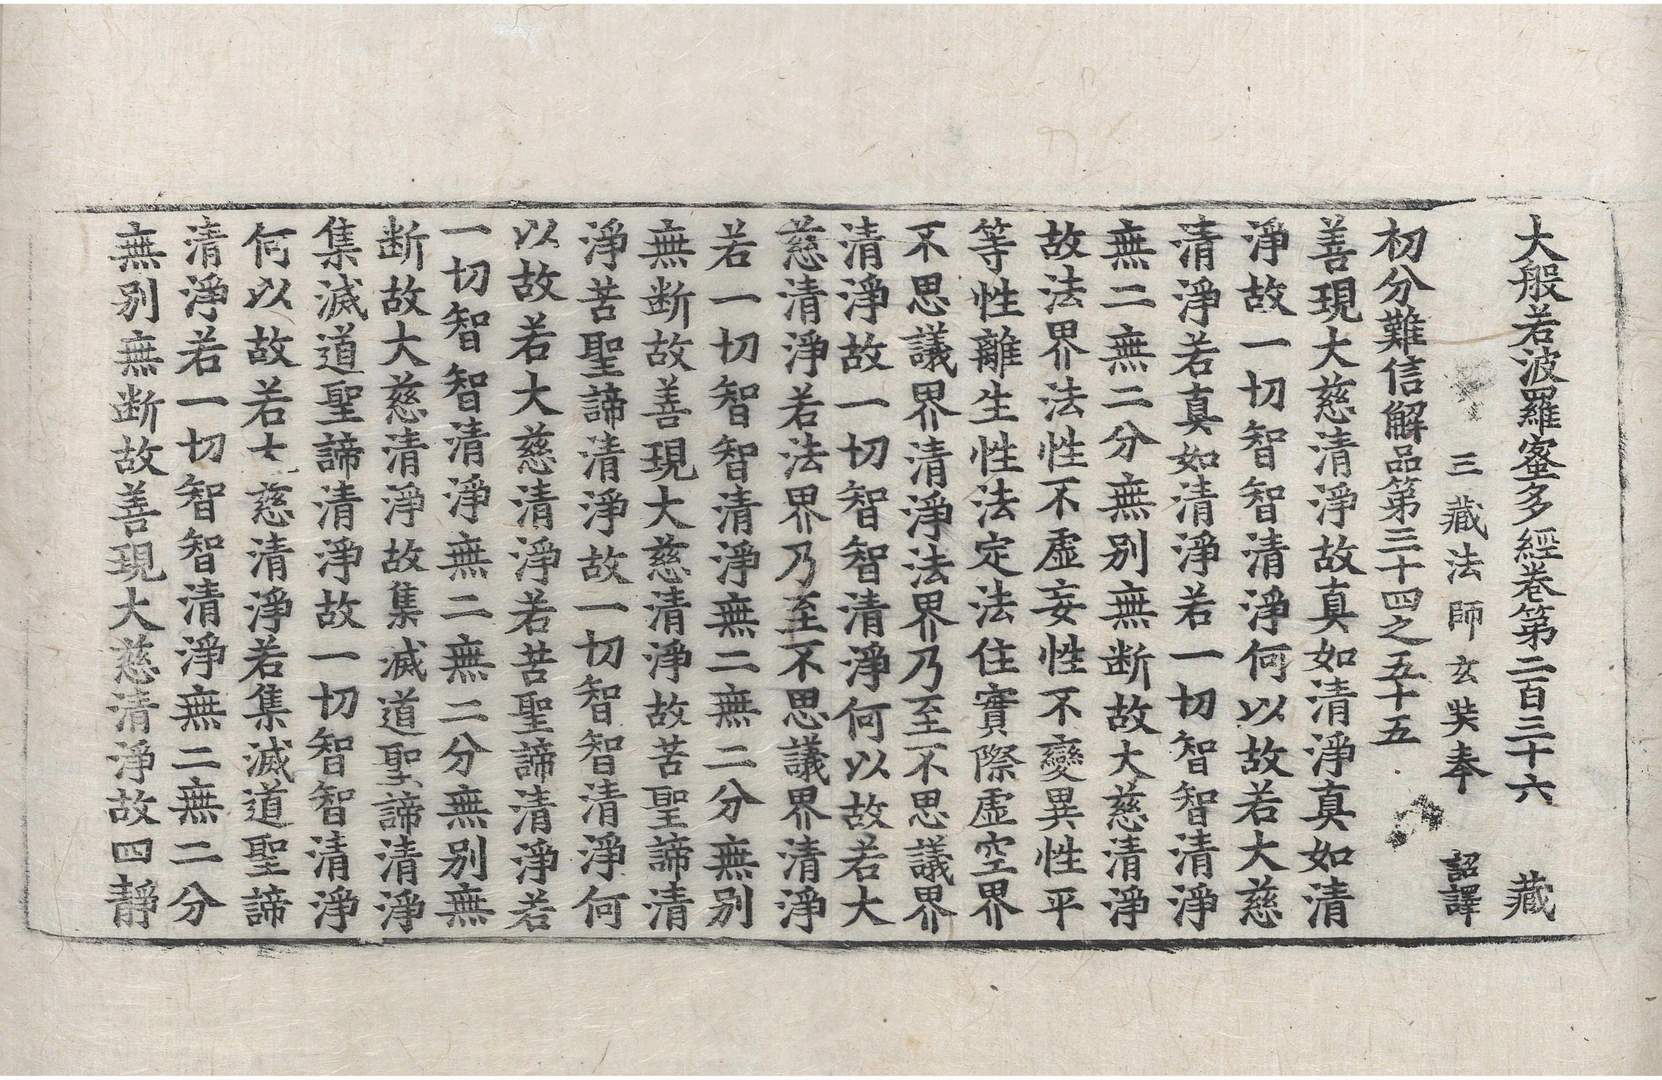 大般若波羅蜜多經卷第二百三十六 藏
三藏法師玄奘奉 詔譯
初分難信解品第三十四之五十五
善現大慈清淨故真如清淨真如清
淨故一切智智清淨何以故若大慈
清淨若真如清淨若一切智智清淨
無二無二分無別無斷故大慈清淨
故法界法性不虛妄性不變異性平
等性離生性法定法住實際虛空界
不思議界清淨法界乃至不思議界
清淨故一切智智清淨何以故若大
慈清淨若法界乃至不思議界清淨
若一切智智清淨無二無二分無別
無斷故善現大慈清淨故苦聖諦清
淨苦聖諦清淨故一切智智清淨何
以故若大慈清淨若苦聖諦清淨若
一切智智清淨無二無二分無別無
断故大慈清淨故集滅道聖諦清淨
集滅道聖諦清淨故一切智智清淨
何以故若大慈清淨若集滅道聖諦
清淨若一切智智清淨無二無二分
無別無断故善現大慈清淨故四靜